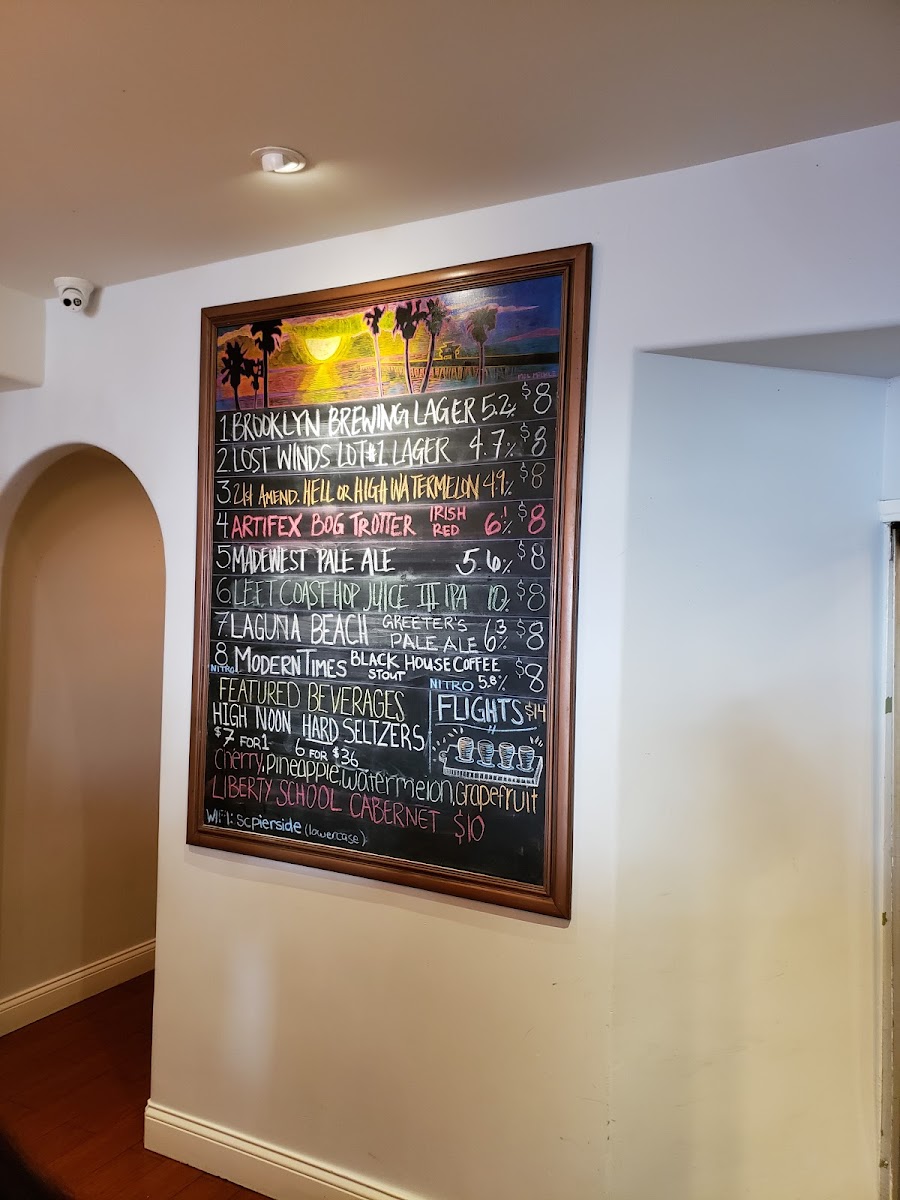 1 BROOKLYN BREWING LAGER 5.2% $8
2. LOST WINDS LOT#1 LAGER 4.7% $8
3 21st AMEND. HELL OR HIGH WATERMELON 4.9% $8
4 ARTIFEX BOG TROTTER IRISH RED 6.1% $8
5 MADEWEST PALE ALE 5.6% $8
6 LEFT COAST HOP JUICE III IPA 10% $8
7. LAGUNA BEACH GREETER'S PALE ALE 6.3% $8
8 NITRO MODERN TIMES BLACK HOUSE COFFEE STOUT NITRO 5.8% $8
FEATURED BEVERAGES
HIGH NOON HARD SELTZERS
$7 FOR 1 6 FOR $36
cherry, pineapple, watermelon, grapefruit
LIBERTY SCHOOL CABERNET $10
WIFI: scpierside (lowercase)
FLIGHTS $14